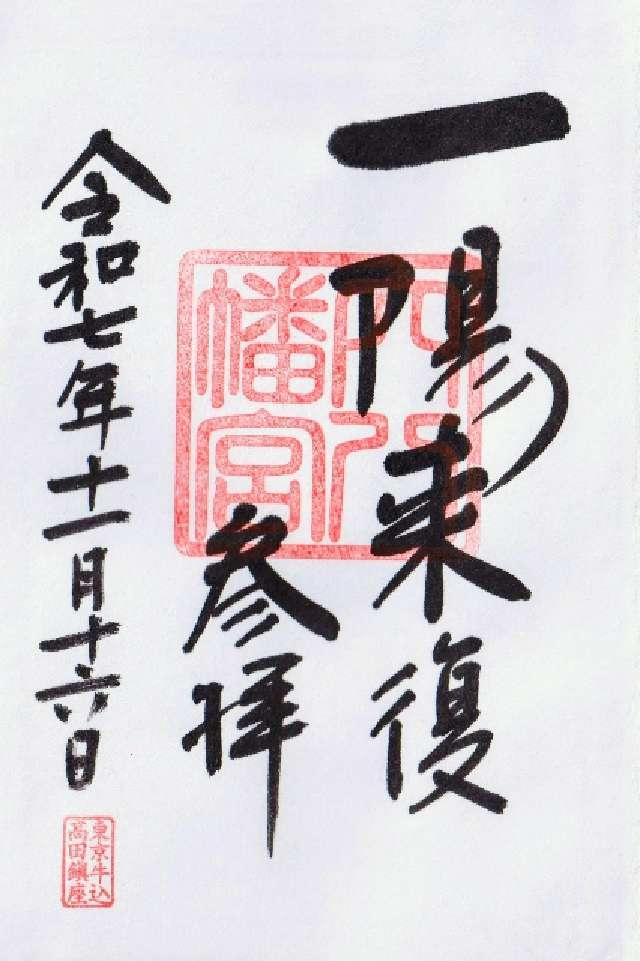 一陽来復
幡宮
参拝
令和七年十一月十六日
東京牛込
高田鎮座